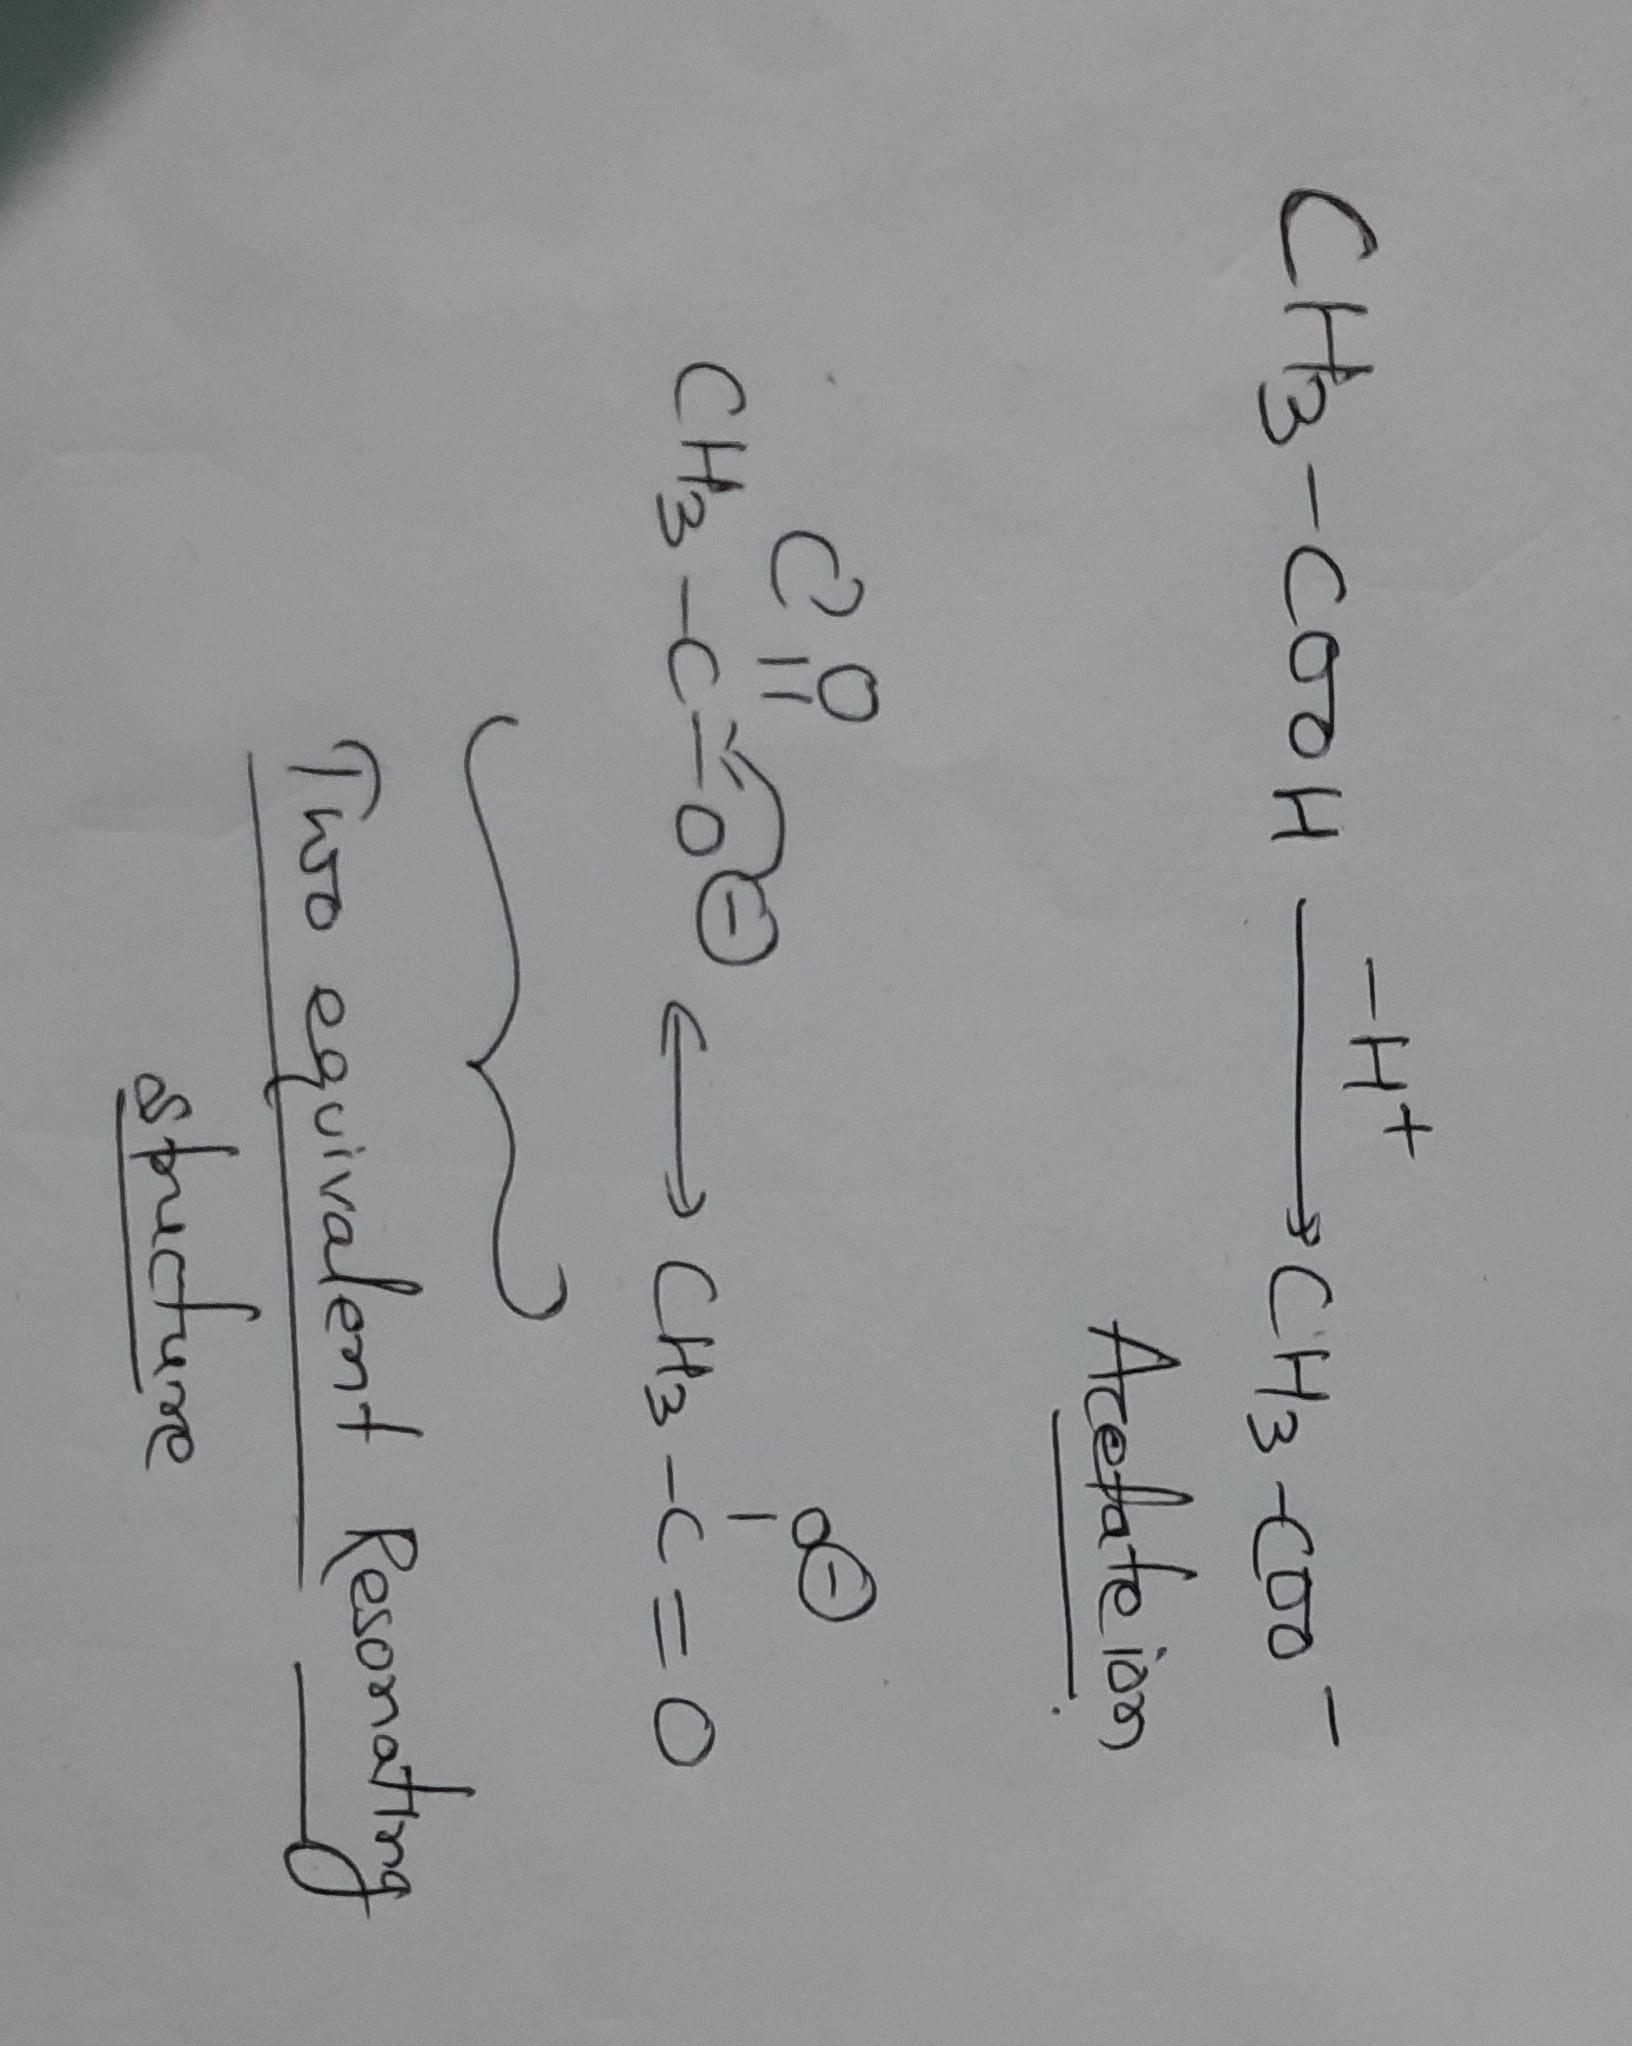 CH3-COOH -H+ → CH3-COO-
Acetate ion
O O⊖
|| |
CH3-C-O⊖ ⟷ CH3-C=O
Two equivalent Resonating
structure